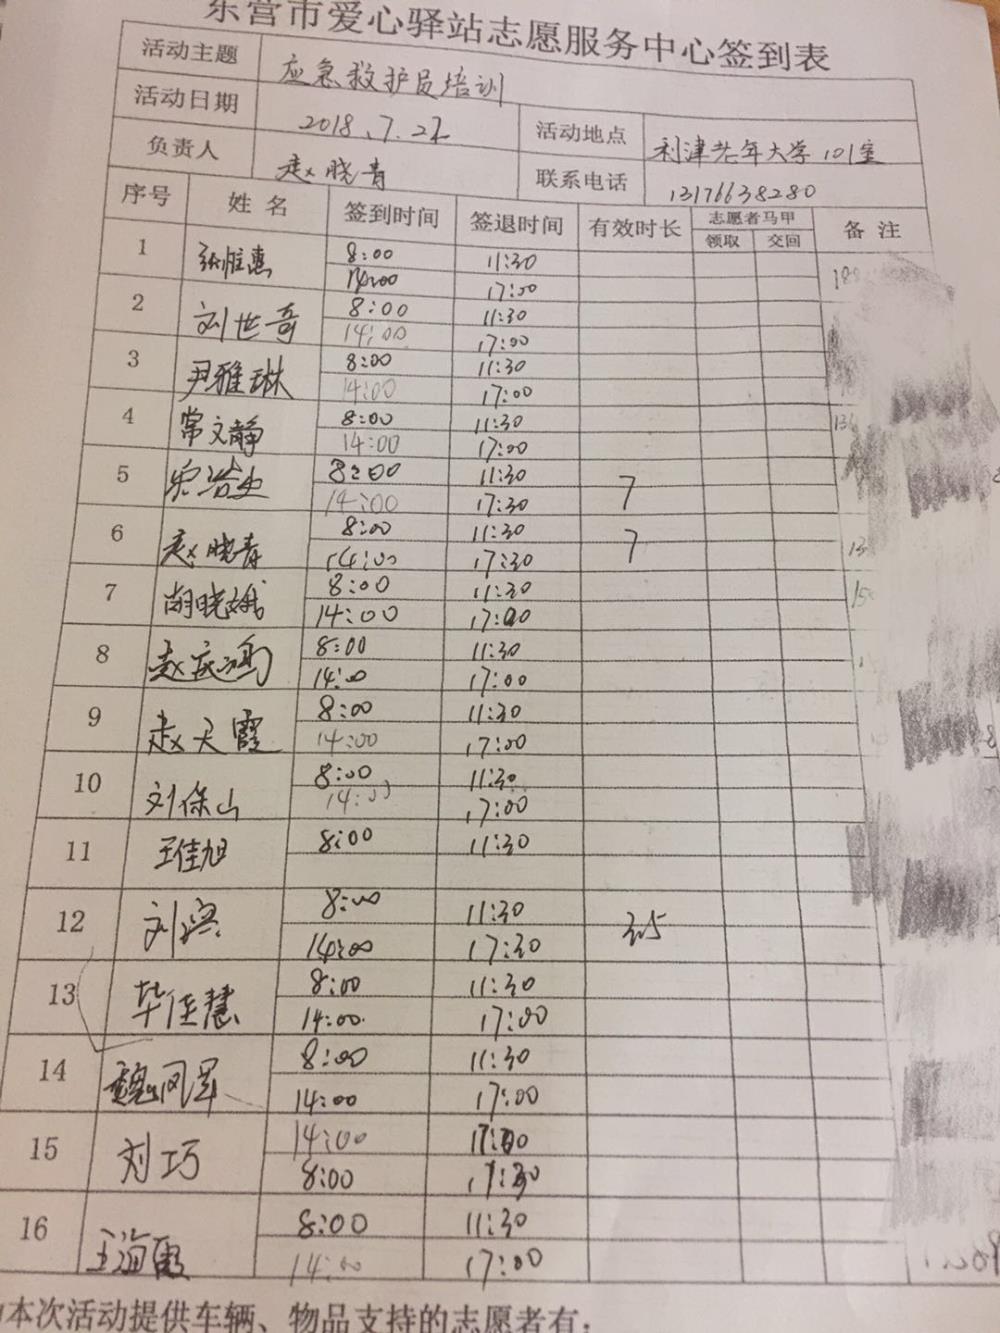 东营市爱心驿站志愿服务中心签到表
活动主题 应急救护员培训
活动日期 2018.7.22 活动地点 利津老年大学101室
负责人 赵晓青 联系电话 13176638280
序号 姓名 签到时间 签退时间 有效时长 志愿者马甲 备注
领取 交回
1 8:00 11:30
14:00 17:00
2 刘世奇 8:00 11:30
14:00 17:00
3 尹雅琳 8:00 11:30
14:00 17:00
4 常文静 8:00 11:30
14:00 17:00
5 8:00 11:30 7
14:00 17:30
6 赵晓青 8:00 11:30 7
14:00 17:30
7 胡晓娥 8:00 11:30
14:00 17:00
8 8:00 11:30
14:00 17:00
9 赵天霞 8:00 11:30
14:00 17:00
10 刘保山 8:00 11:30
14:00 17:00
11 王佳旭 8:00 11:30
12 8:00 11:30
14:00 17:30
13 毕佳慧 8:00 11:30
14:00 17:00
14 8:00 11:30
14:00 17:00
15 刘巧 14:00 17:00
8:00
16 王海霞 8:00 11:30
14:00 17:00
本次活动提供车辆、物品支持的志愿者有: